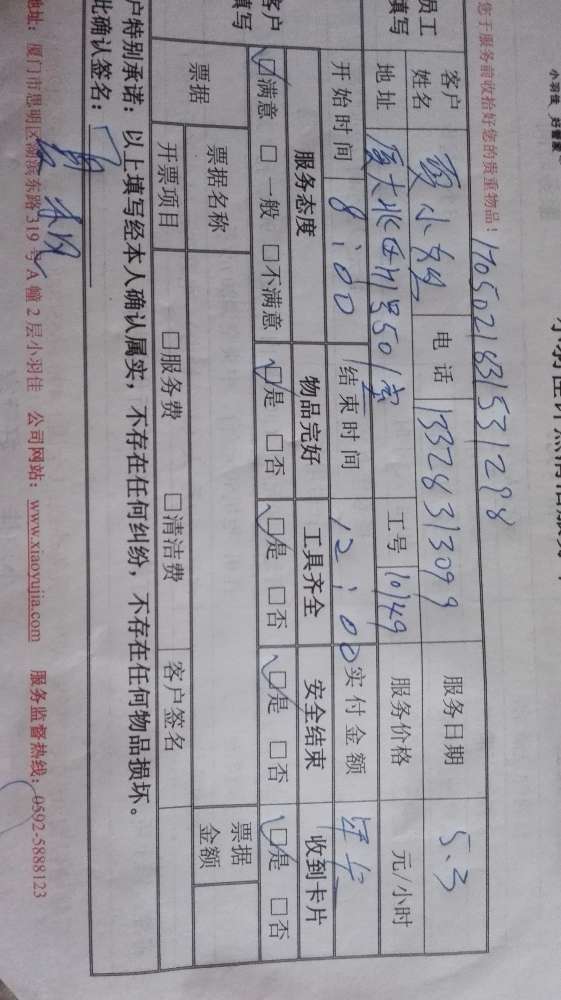 小羽佳 好管家
您于服务前收拾好您的贵重物品！
1705021831531298
员工填写
客户姓名 贾小姐 电话 13328313099 服务日期 5.3
地址 厦大 501室 工号 10149 服务价格 元/小时
开始时间 8:00 结束时间 12:00 实付金额 年卡
客户填写
服务态度 物品完好 工具齐全 安全结束 收到卡片
☑满意 □一般 □不满意 ☑是 □否 ☑是 □否 ☑是 □否 ☑是 □否
票据 票据名称 票据金额
开票项目 □服务费 □清洁费 客户签名
户特别承诺：以上填写经本人确认属实，不存在任何纠纷，不存在任何物品损坏。
此确认签名：
地址：厦门市思明区湖滨东路319号A幢2层小羽佳 公司网站：www.xiaoyujia.com 服务监督热线：0592-5888123